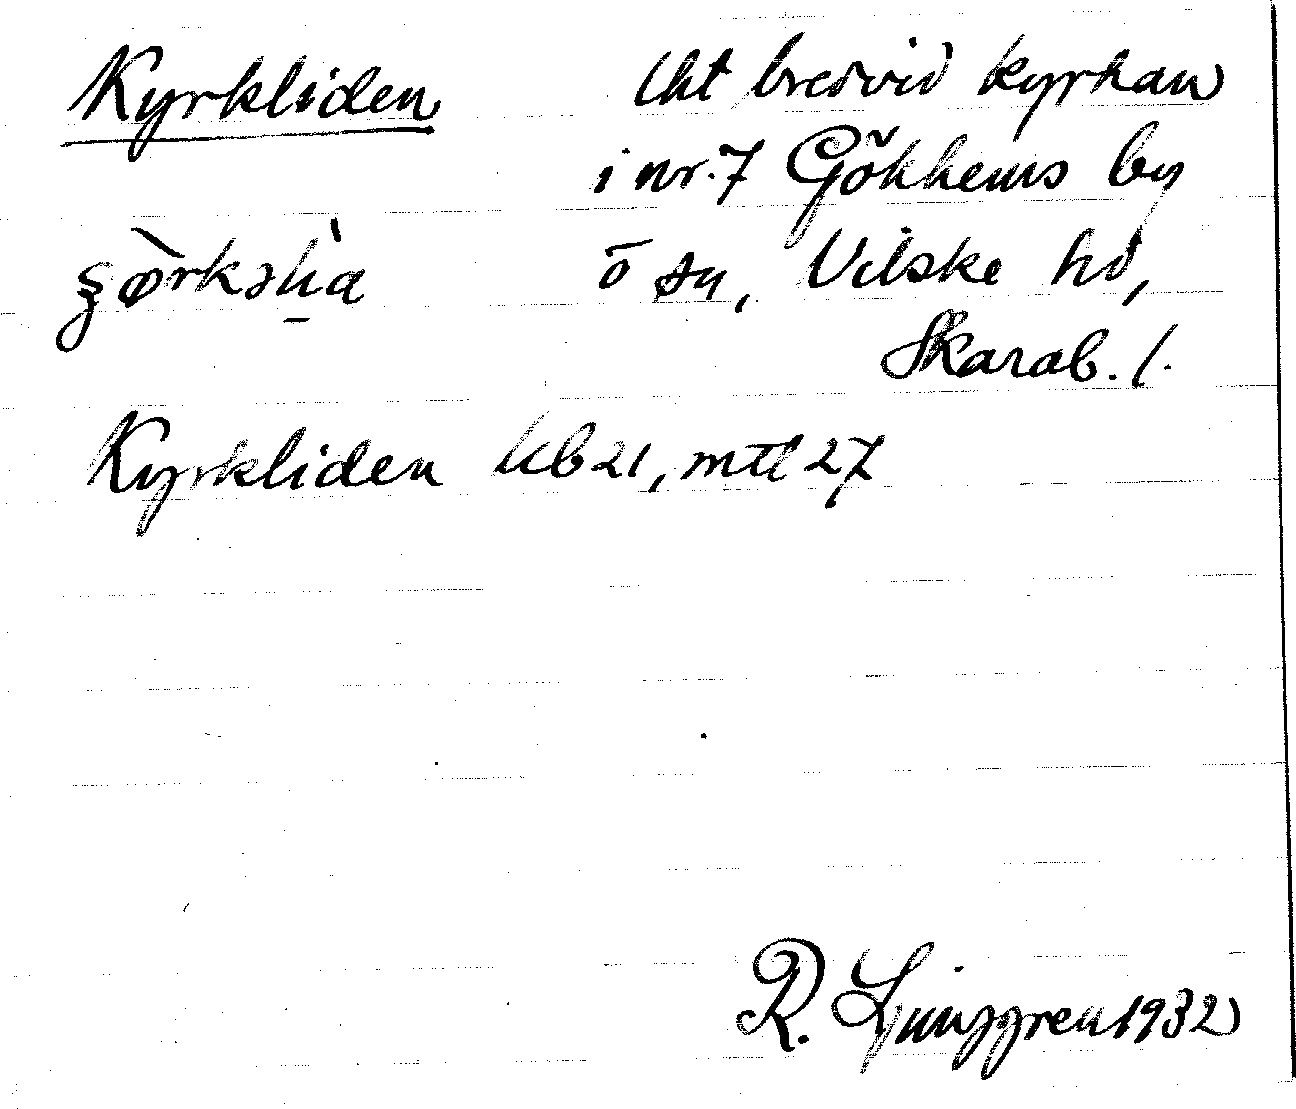 Kyrkliden
lht bredvid kyrkan
i nr. 7 Gökhems by
o sn, Vilske hd,
Skarab. l.
Kyrkliden kb 21, mtl 27
R. Ljunggren 1932